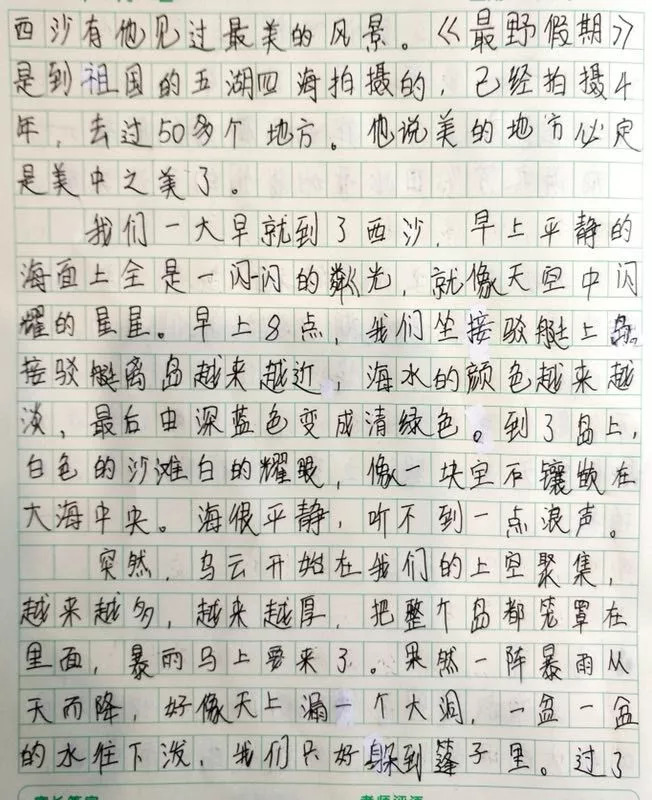 西沙有他见过最美的风景。《最野假期》
是到祖国的五湖四海拍摄的，已经拍摄4
年，去过50多个地方。他说美的地方必定
是美中之美了。
我们一大早就到了西沙，早上平静的
海面上全是一闪闪的粼光，就像天空中闪
耀的星星。早上8点，我们坐接驳艇上岛。
接驳艇离岛越来越近，海水的颜色越来越
淡，最后由深蓝色变成清绿色。到了岛上，
白色的沙滩白的耀眼，像一块宝石镶嵌在
大海中央。海很平静，听不到一点浪声。
突然，乌云开始在我们的上空聚集，
越来越多，越来越厚，把整个岛都笼罩在
里面，暴雨马上要来了。果然一阵暴雨从
天而降，好像天上漏一个大洞，一盆一盆
的水往下泼，我们只好躲到篷子里。过了